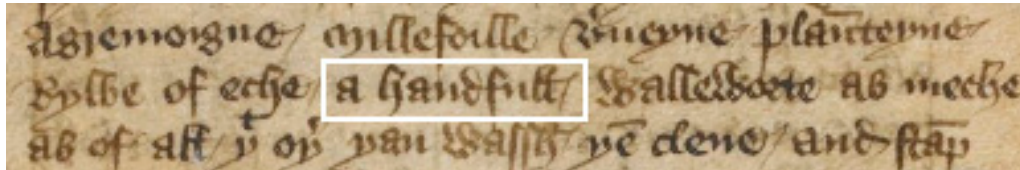 Agremoigne / millefoille / v'ueyne / plānteyne /
Rybbe of eche / a handfull / wallewoete as meche
as of all / yͭ oy' yan wassh yē clene / and stāp